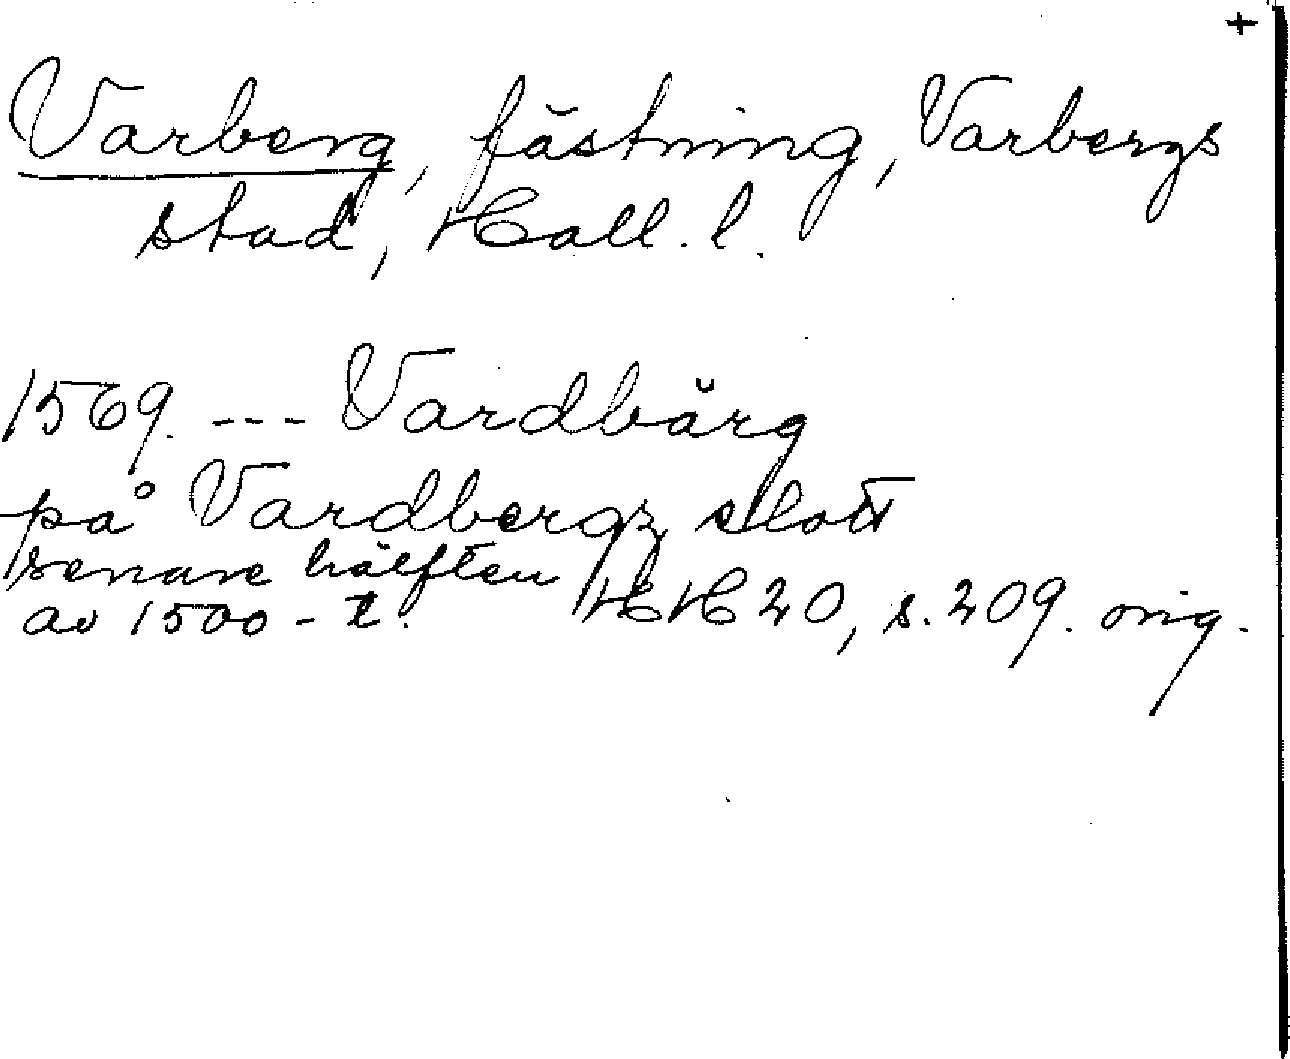 +
Varberg, fästning, Varbergs
stad, Hall. l.
1569. --- Vardbärg
på Vardbergz slott
senare hälften
av 1500-t. HH 20, s. 209. orig.